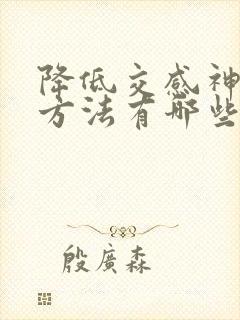 降低交感神
方法有哪些
殷廣森